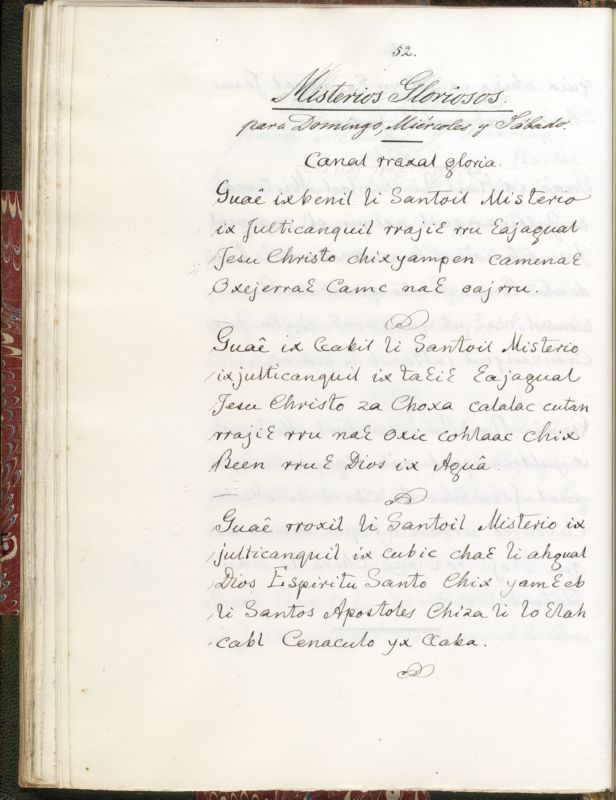 52.
Misterios Gloriosos.
para Domingo, Miércoles y Sábado.
Canal rraxal gloria.
Guaê ixbenil li Santoil Misterio
ix Julticanquil rrajiƐ rru Eajagual
Jesu Christo chixyampen camenaƐ
OxejerraƐ Camc naƐ oajrru.
Guaê ix Ccakil li Santoil Misterio
ixjulticanquil ix taƐiƐ Eajagual
Jesu Christo za Choxa calalac cutan
rrajiƐ rru naƐ Oxic cohlaac chix
Been rruƐ Dios ix Aguâ.
Guaê rroxil li Santoil Misterio ix
julticanquil ix cubic chaƐ li ahgual
Dios Espiritu Santo Chix yamƐeb
li Santos Apostoles Chiza li loƐlah
cabl Cenaculo yx Ccaba.